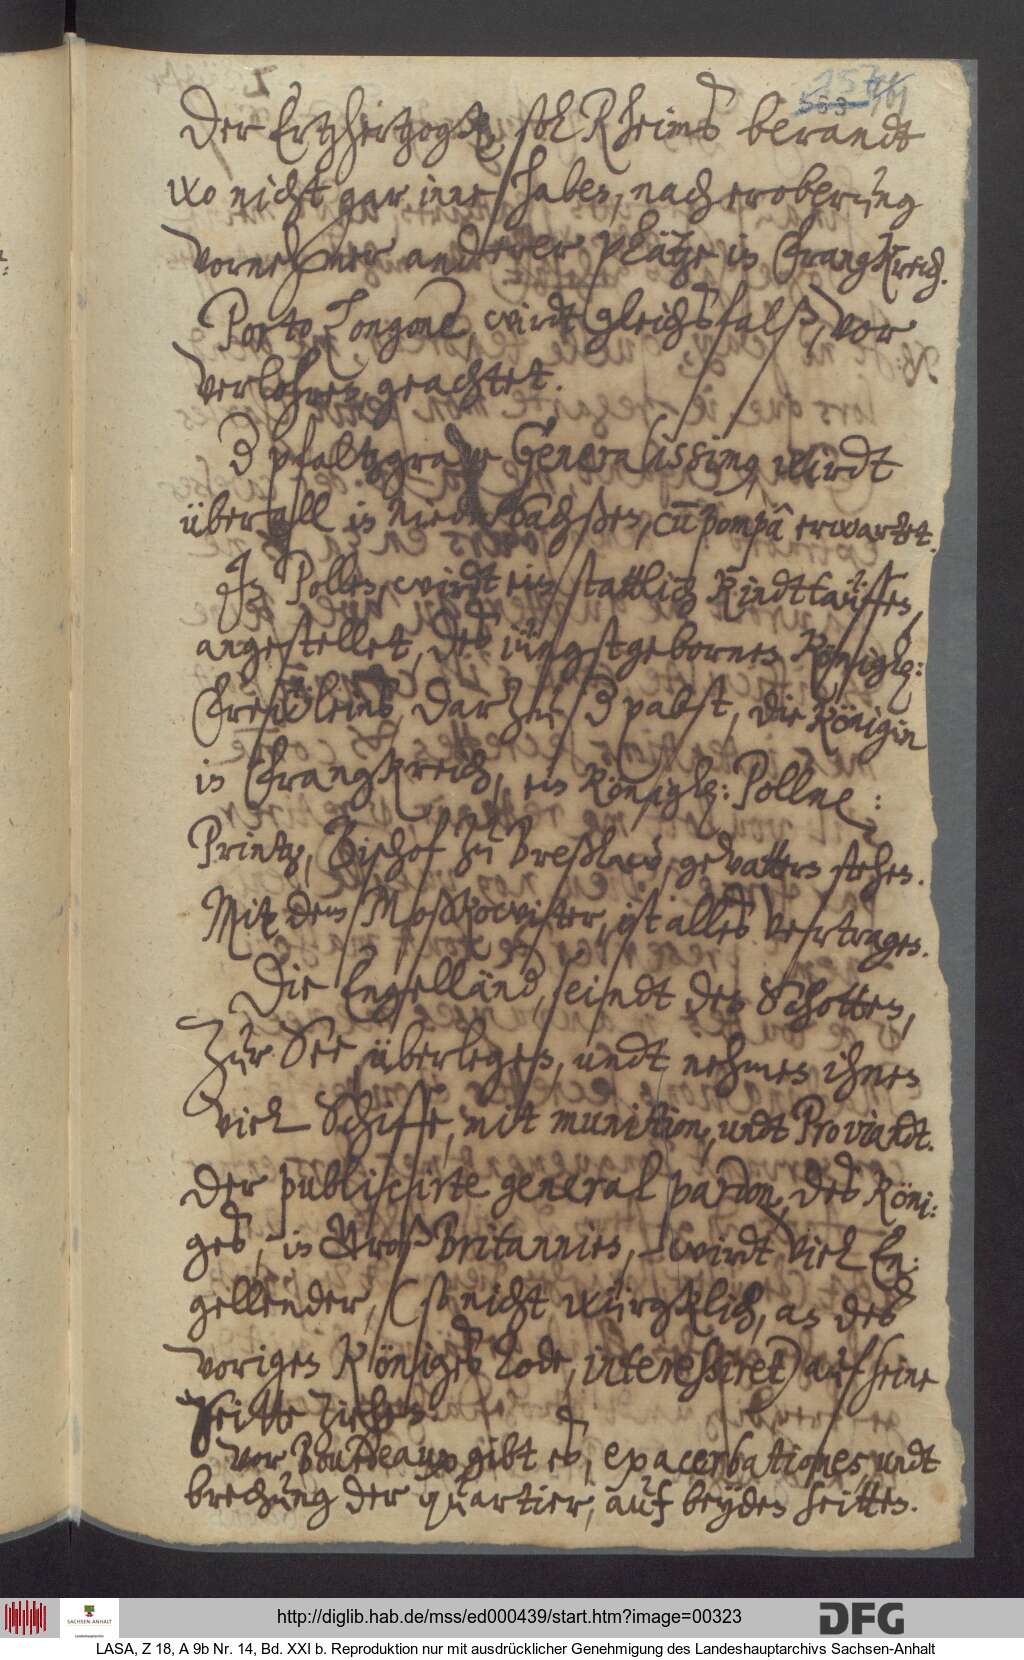 Der Ertzhertzogk, soll Rheims berandt
wo nicht gar inne haben, nach eroberung
vornehmer anderer plätze in Frangkreich.
Porto Longone wirdt gleichsfalß, vor
verlohren geachtet.
pfaltzgrave Generalissimg wirdt
überall in NiederSachßen, cũ pompâ erwartet.
In Pollen, wirdt ein stattlich Kindttäuffen,
angestellet, des iüngstgebornen Königl:
Freẅleins, darzu pabst, die Königin
in Frangkreich, ein Königl: Pollne:
Printz, Bischof zu Breßlaw, gevattern stehen.
Mitt dem Moßkowiter, ist alles vertragen.
Die Engelländ, seindt den Schotten,
Zur See, überlegen, undt nehmen ihnen
viel Schiffe, mit munition, undt Proviandt.
Der publicirte general pardon, des Köni:
ges, in Groß Britannien, wirdt viel En:
gellender, (so nicht würgklich, an des
vorigen Königes Tode, interessiret) auf seine
seitte ziehen.
vor Bourdeaux gibt es, exacerbationes undt
brechung der quartier, auf beyden seitten.
http://diglib.hab.de/mss/ed000439/start.htm?image=00323
SACHSEN-ANHALT
DFG
LASA, Z 18, A 9b Nr. 14, Bd. XXI b. Reproduktion nur mit ausdrücklicher Genehmigung des Landeshauptarchivs Sachsen-Anhalt